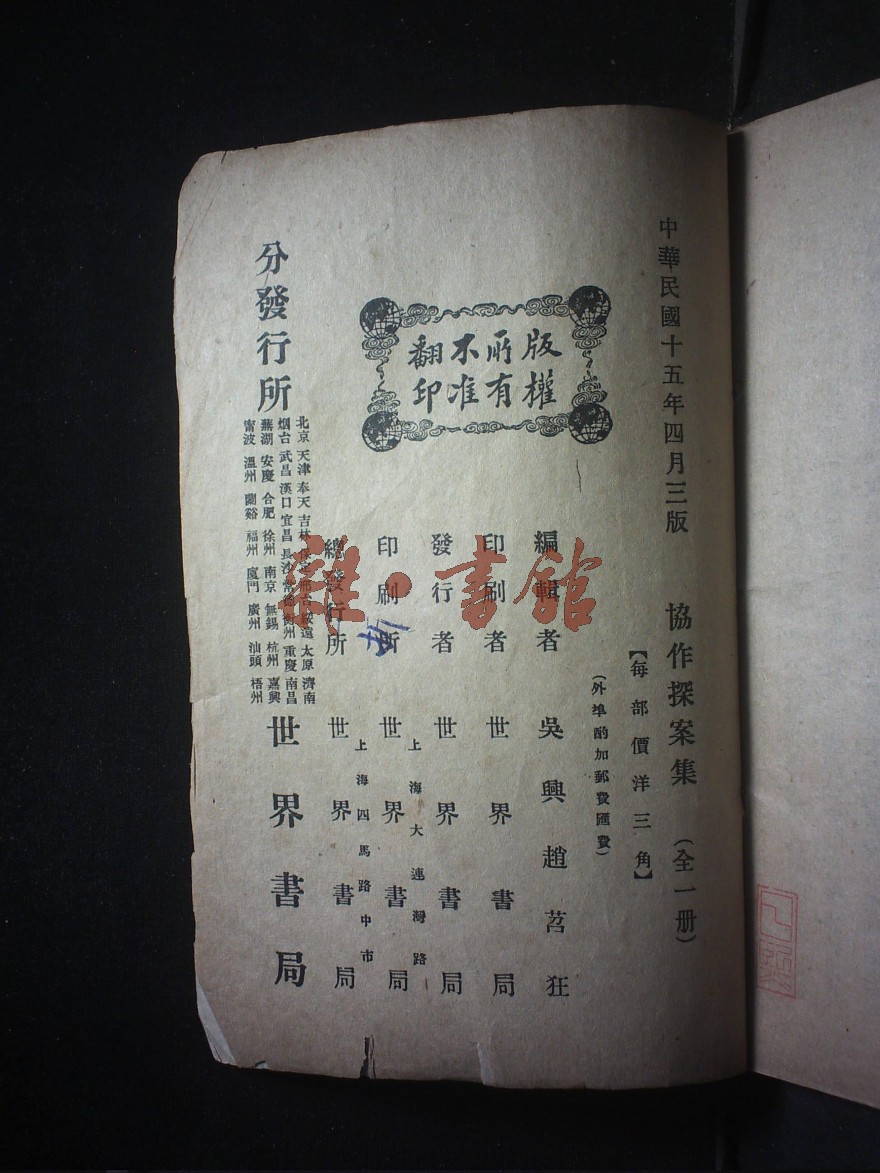 中華民國十五年四月三版
協作探案集 （全一册）
【每部價洋三角】
（外埠酌加郵費匯費）
版權
所有
不准
翻印
編輯者 吳興趙苕狂
印刷者 世界書局
發行者 世界書局
上海大連灣路
印刷所 世界書局
上海四馬路中市
總發行所 世界書局
分發行所
北京 天津 奉天 吉林 太原 濟南
烟台 武昌 漢口 宜昌 長沙 常德 衡州 重慶 南昌
蕪湖 安慶 合肥 徐州 南京 無錫 杭州 嘉興
甯波 溫州 蘭谿 福州 廈門 廣州 汕頭 梧州
世界書局
雜·書館